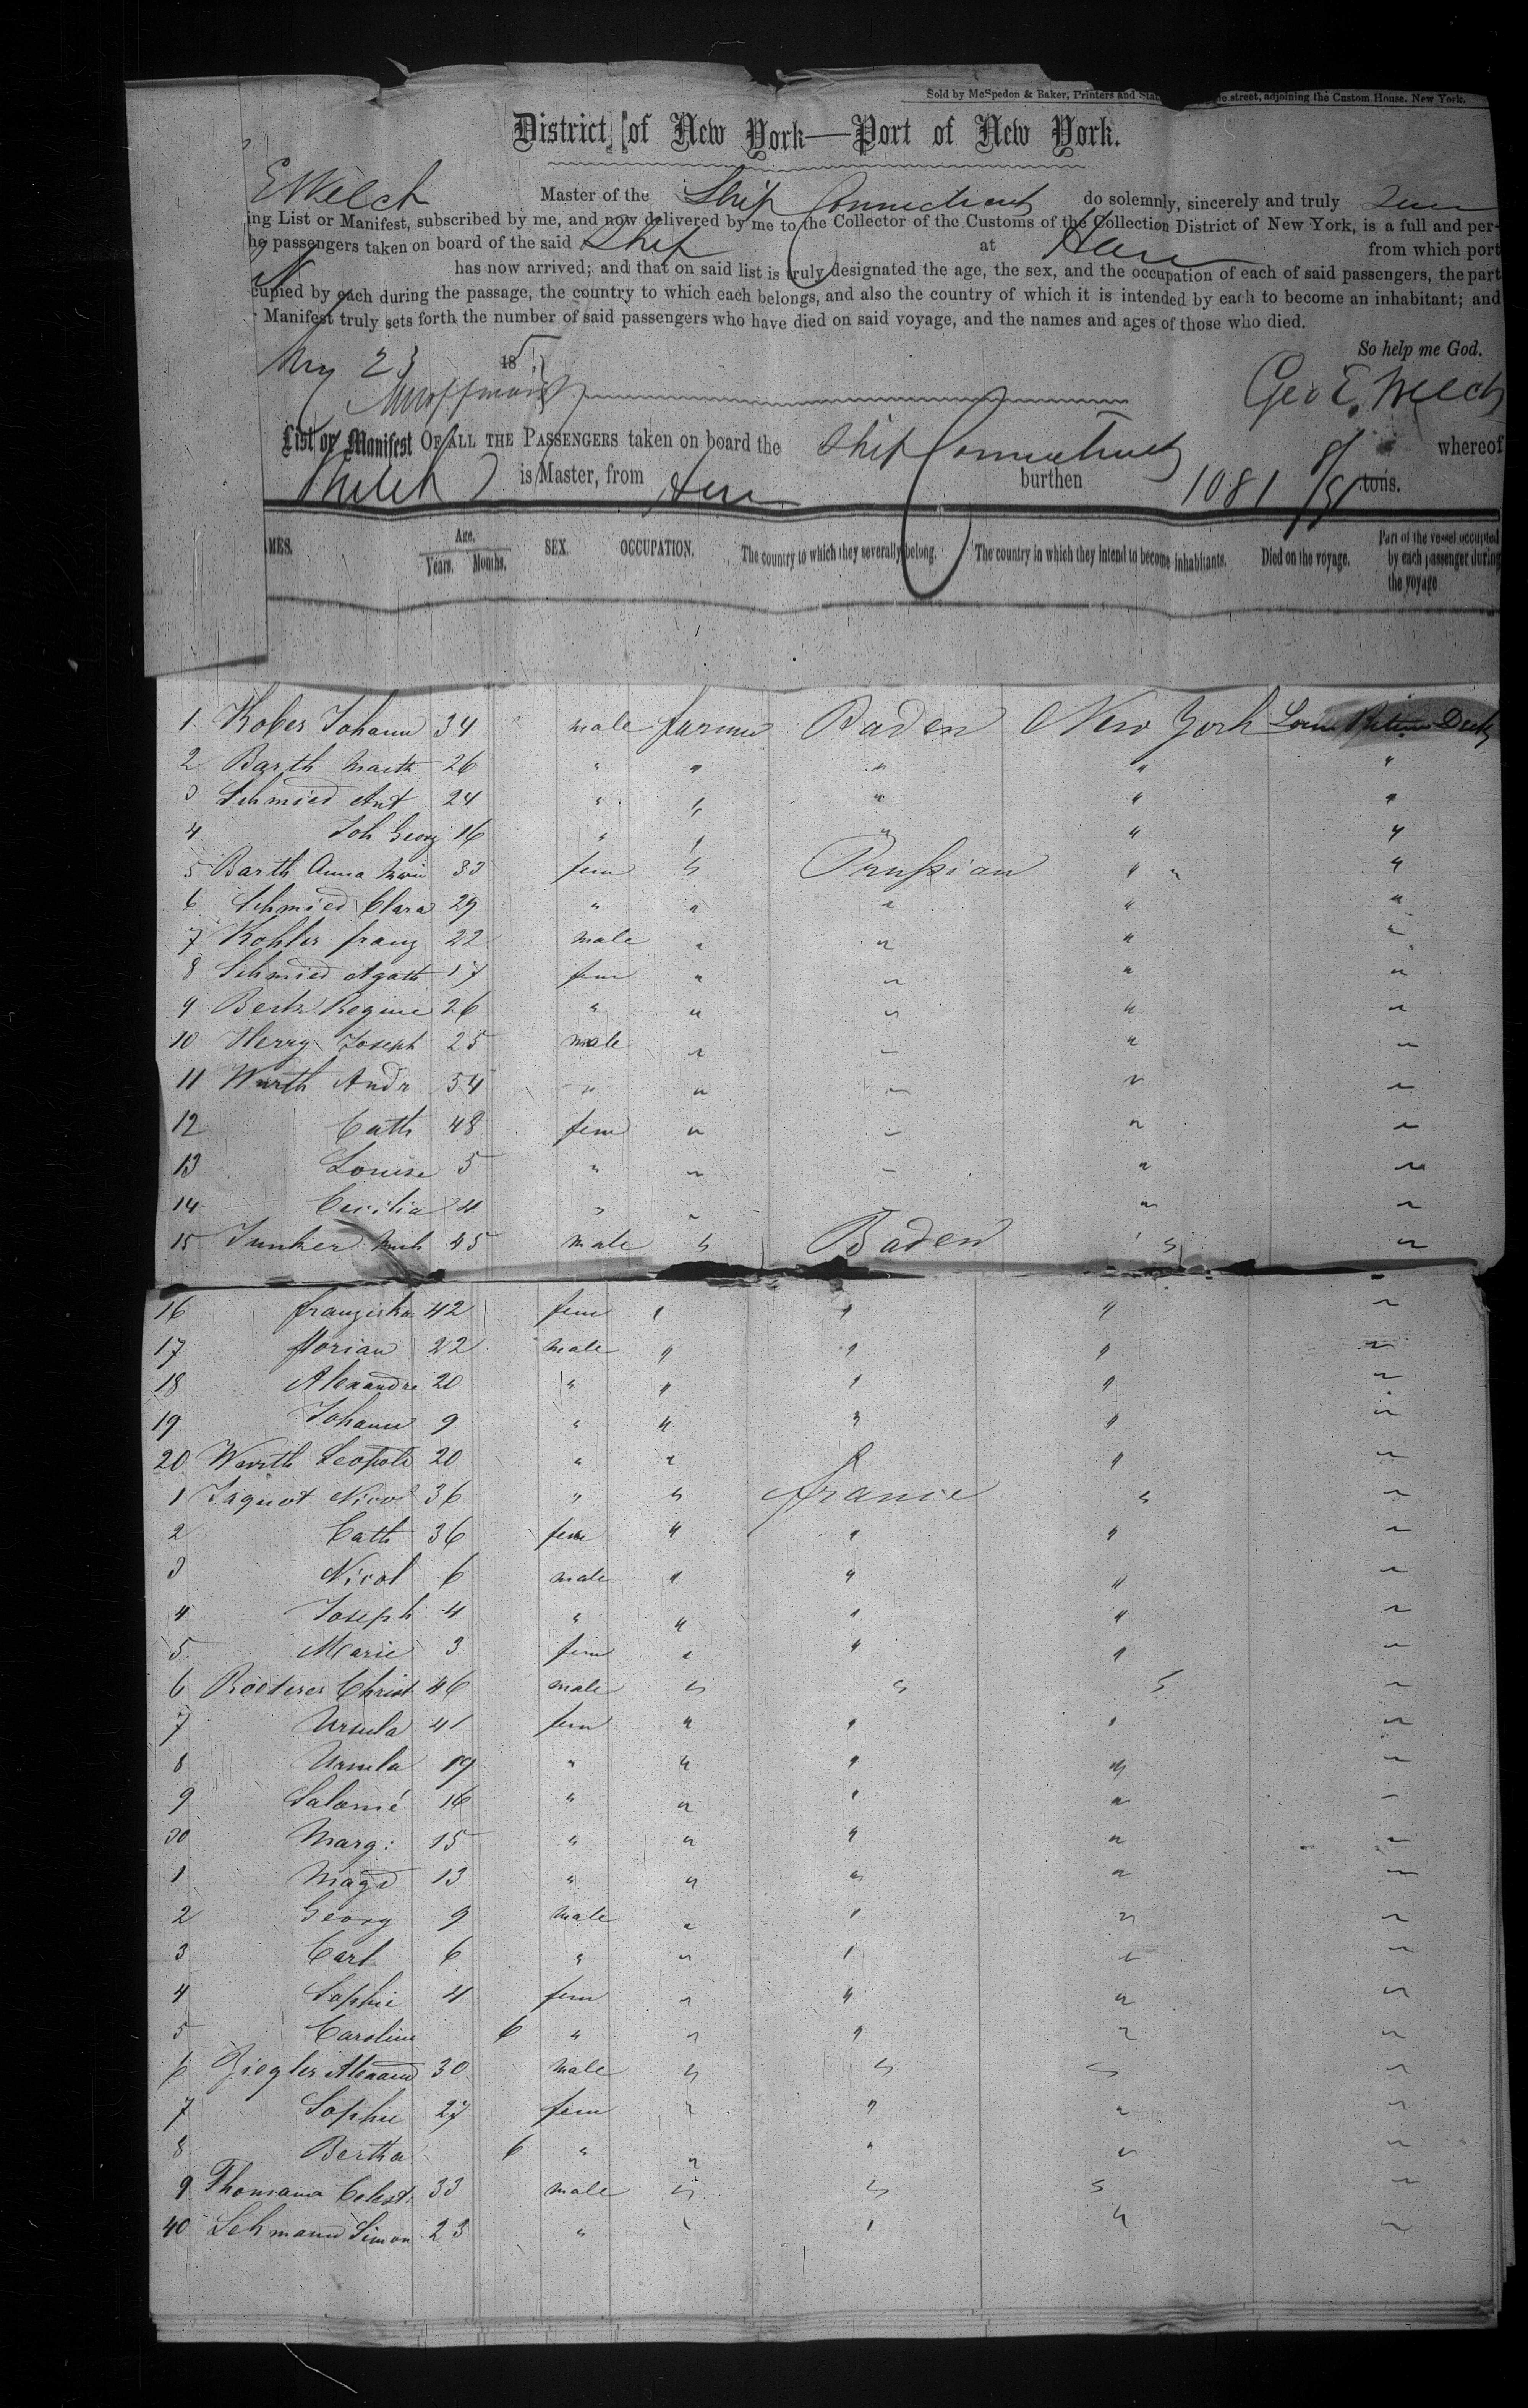 Sold by McSpedon & Baker, Printers and street, adjoining the Custom House. New York.
District of New York—Port of New York.
E Welch Master of the Ship Connecticut do solemnly, sincerely and truly
ing List or Manifest, subscribed by me, and now delivered by me to the Collector of the Customs of the Collection District of New York, is a full and per-
he passengers taken on board of the said Ship at from which port
has now arrived; and that on said list is truly designated the age, the sex, and the occupation of each of said passengers, the part
cupied by each during the passage, the country to which each belongs, and also the country of which it is intended by each to become an inhabitant; and
Manifest truly sets forth the number of said passengers who have died on said voyage, and the names and ages of those who died.
So help me God.
23 185
Geo E. Welch
List or Manifest OF ALL THE PASSENGERS taken on board the Ship Connecticut whereof
Welch is Master, from burthen 1081 tons.
MES. Age. Years. Months. SEX. OCCUPATION. The country to which they severally belong. The country in which they intend to become inhabitants. Died on the voyage. Part of the vessel occupied by each passenger during the voyage
1. Kober Johann 34 male farmer Baden New York Deck
2 Barth 26 " " " " "
3 Schmied Ant 24 " " " " "
4 Joh Georg 16 " " " " "
5 Barth Anna 33 fem " Prussian " "
6 Schmied Clara 29 " " " " "
7 Kohler franz 22 male " " " "
8 Schmied Agath 17 fem " " " "
9 Regine 26 " " " " "
10 Herry Joseph 25 male " " " "
11 Wurth Andr 54 " " " " "
12 Cath 48 fem " " " "
13 Louise 5 " " " " "
14 Cecilia 4 " " " " "
15 Junker Mich 45 male " Baden " "
16 franziska 42 fem " " " "
17 florian 22 male " " " "
18 Alexandre 20 " " " " "
19 Johann 9 " " " " "
20 Wurth Leopold 20 " " " "
1 Jaquot Nicol 36 " " france " "
2 Cath 36 fem " " " "
3 Nicol 6 male " " " "
4 Joseph 4 " " " " "
5 Marie 3 fem " " " "
6 Roederer Christ 46 male " " " "
7 Ursula 41 fem " " " "
8 Ursula 19 " " " " "
9 Salomé 16 " " " " "
30 Marg: 15 " " " " "
1 Magd 13 " " " " "
2 Georg 9 male " " " "
3 Carl 6 " " " " "
4 Sophie 4 fem " " " "
5 Caroline 6 " " " " "
6 Ziegler Alexand 30 male " " " "
7 Sophie 27 fem " " " "
8 Bertha 6 " " " " "
9 Thomann Celest: 33 male " " " "
40 Lehmann Simon 23 " " " " "